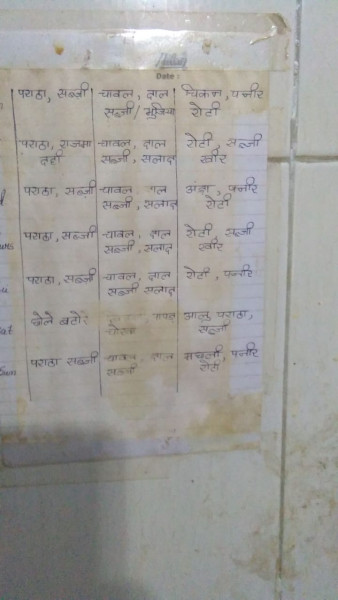 Date :
पराठा, सब्जी चावल, दाल चिकन, पनीर
सब्जी/भुजिया रोटी
पराठा, राजमा चावल, दाल रोटी, सब्जी
दही सब्जी, सलाद खीर
पराठा, सब्जी चावल दाल अंडा, पनीर
सब्जी, सलाद रोटी
पराठा, सब्जी चावल, दाल रोटी, सब्जी
सब्जी, सलाद खीर
पराठा, सब्जी चावल, दाल रोटी, पनीर
सब्जी सलाद
छोले बटोरे आलू पराठा,
सब्जी
पराठा सब्जी चावल, दाल मछली, पनीर
Sun सब्जी रोटी